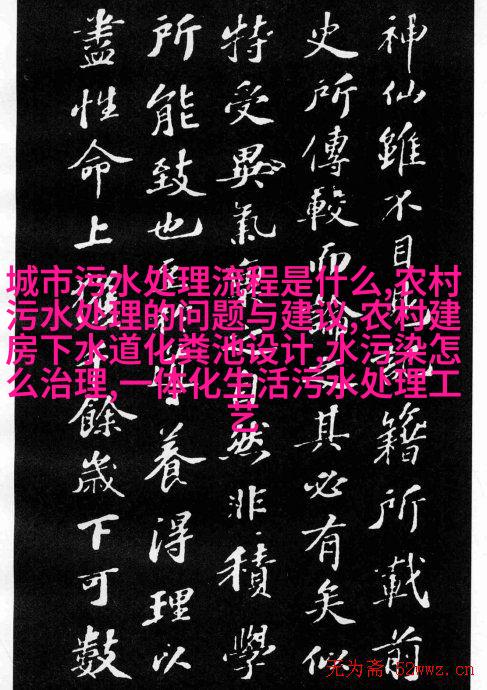 神仙雖不目見記籍所載前
史所傳較而論之其必有矣似
特受異氣稟之自然非積學
所能致也至於養得理以
盡性命上獲餘歲下可數
城市污水处理流程是什么,农村
污水处理的问题与建议,农村建
房下水道化粪池设计,水污染怎
么治理,一体化生活污水处理工
艺
无为斋·52wwz.cn